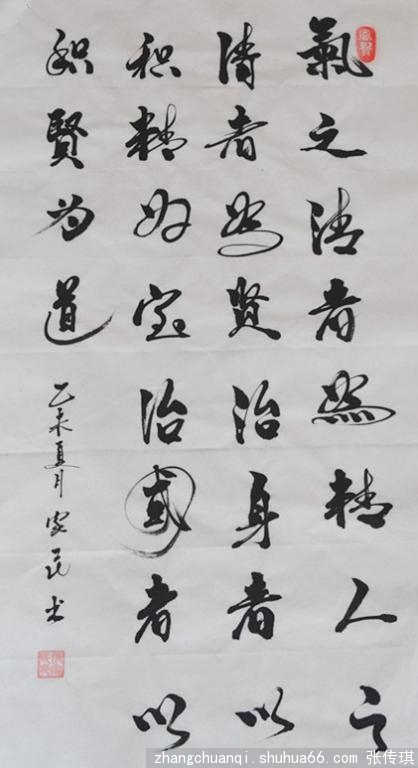 氣之清者为精人之
清者为贤治身者以
积精为宝治國者以
积賢为道
乙未夏月家书
zhangchuanqi.shuhua66.com 张传琪